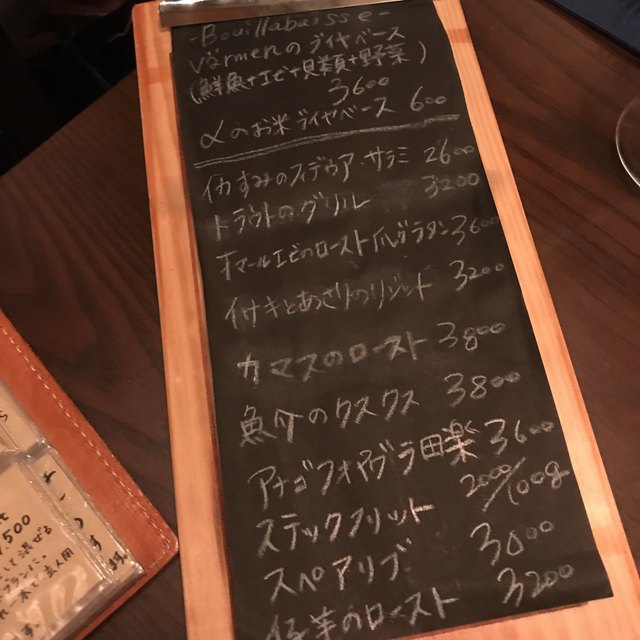 -Bouillabaisse-
Värmenのブイヤベース
(鮮魚+エビ+貝類+野菜)
3600
〆のお米 ブイヤベース 600
イカすみのフィデウア サラミ 2600
トラウトのグリル 3200
オマールエビのロースト 爪グラタン 3600
イサキとあさりのリゾット 3200
カマスのロースト 3800
魚介のクスクス 3800
アナゴフォアグラ田楽 3600
ステックフリット 2000/100g
スペアリブ 3000
仔羊のロースト 3200
500